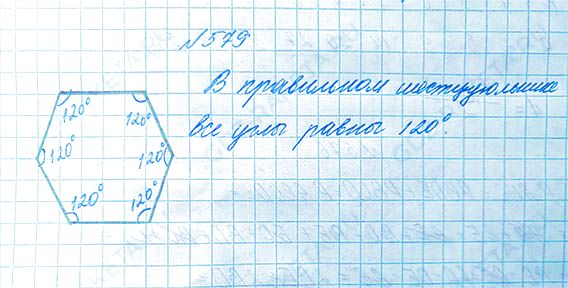 №579
В правильном шестиугольнике
все углы равны 120°.
120° 120°
120° 120°
120° 120°